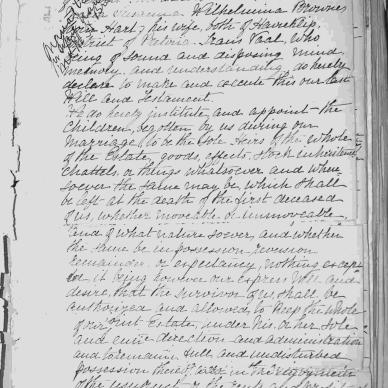 Susanna Wilhelmina Browne
born Hart, his wife, both of
District of Pretoria, Trans Vaal, who
being of sound and disposing mind
memory and understanding, do hereby
declare to make and execute this our last
Will and Testament.
We do hereby institute and appoint the
Children, begotten by us during our
Marriage, to be the Sole Heirs of the whole
of the Estate, goods, effects, stock inheritance
chattels, or things whatsoever and where
soever the same may be, which shall
be left at the death of the first deceased
of us, whether moveable or immoveable,
and of what nature soever, and whether
the same be in possession, reversion
remainder or expectancy, nothing except
ed, it being however our express Will and
desire, that the survivor of us shall be
authorized and allowed to keep the whole
of our Joint Estate, under his or her sole
and direction and administration
and to remain in full and undisturbed
possession thereof, and in the enjoyment
of the usufruct